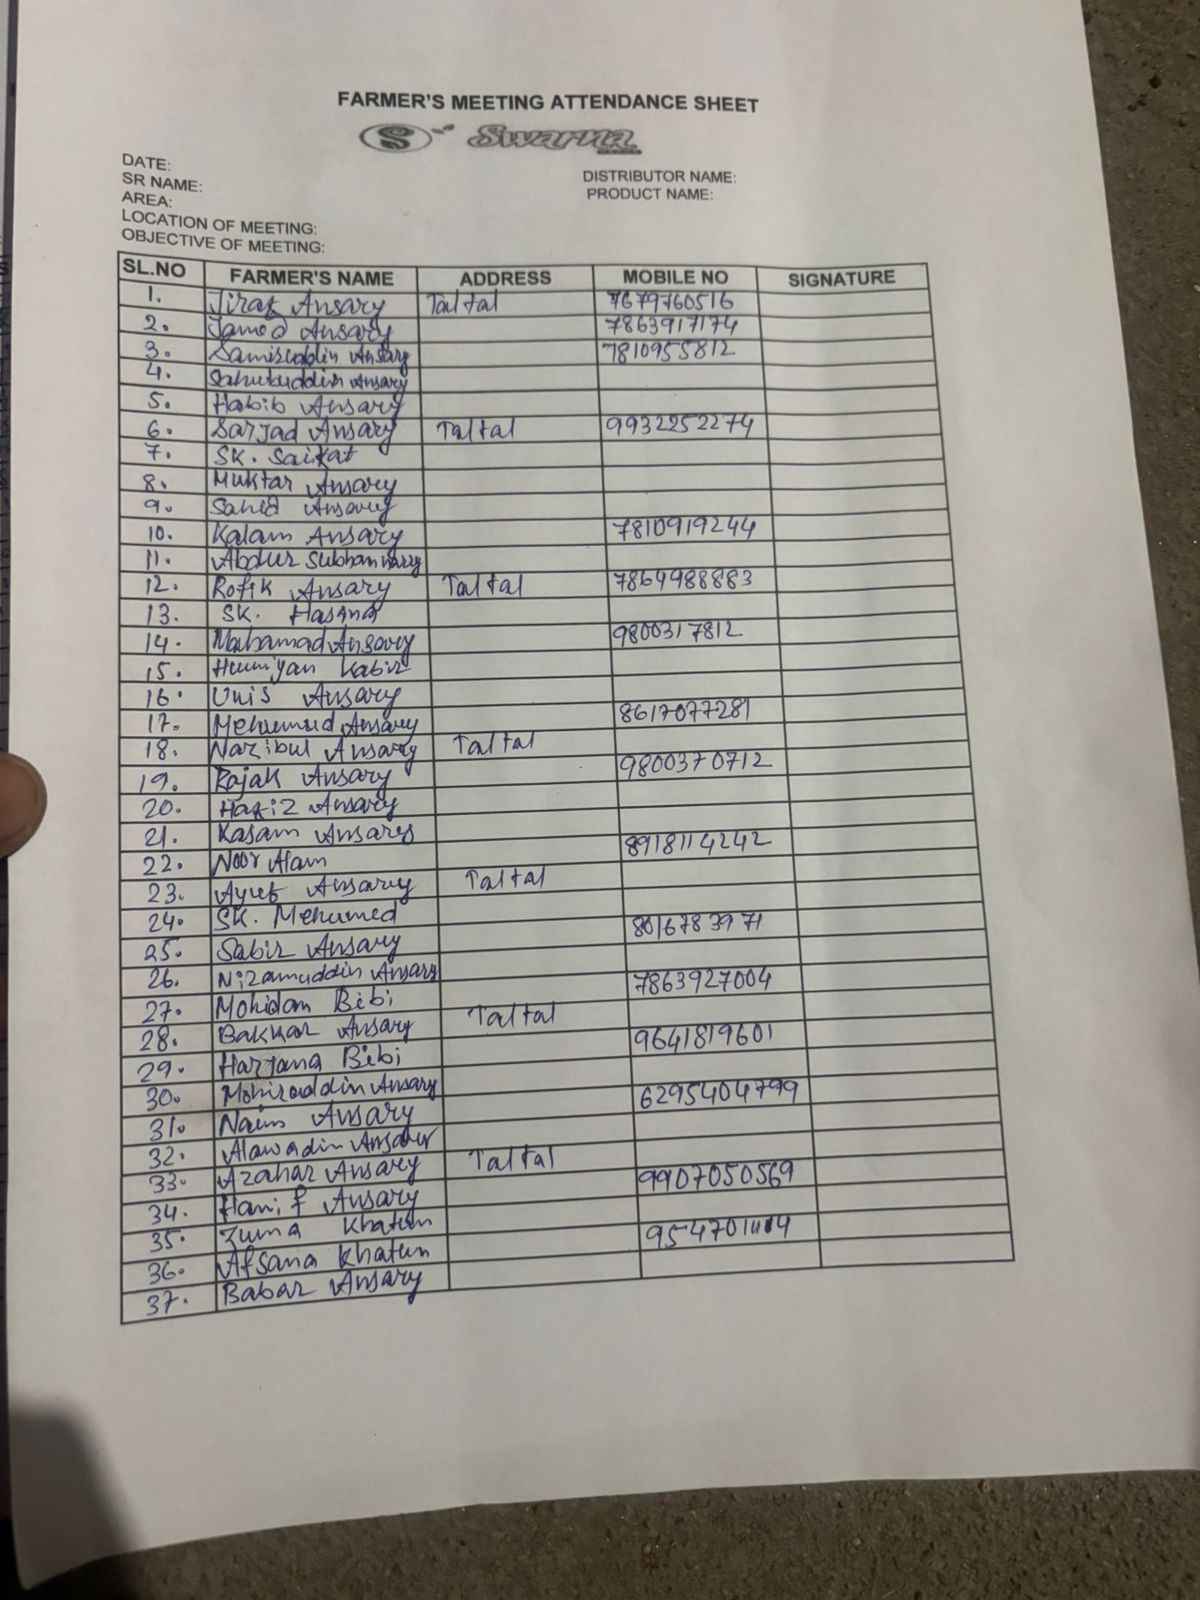 FARMER'S MEETING ATTENDANCE SHEET
S Swarna
DATE:
SR NAME:
AREA:
LOCATION OF MEETING:
OBJECTIVE OF MEETING:
DISTRIBUTOR NAME:
PRODUCT NAME:
SL.NO FARMER'S NAME ADDRESS MOBILE NO SIGNATURE
1. Jiraf Ansary Taltal 7679760516
2. Jamed Ansary 7863917174
3. Samiruddin Ansary 7810955812
4. Sahubuddin Ansary
5. Habib Ansary
6. Sarjad Ansary Taltal 9932252274
7. SK. Saikat
8. Muktar Ansary
9. Sahid Ansary
10. Kalam Ansary 7810919244
11. Abdur Subhan
12. Rofik Ansary Taltal 7864988883
13. SK. Hasana
14. Mahamad Ansary 9800317812
15. Humiyan Kabir
16. Unis Ansary
17. Mehumud Ansary 8617077281
18. Nazibul Ansary Taltal
19. Rajak Ansary 9800370712
20. Hafiz Ansary
21. Kasam Ansary
22. Noor Alam 8918114242
23. Ayub Ansary Taltal
24. SK. Mehumed
25. Sabir Ansary 8016783971
26. Nizamuddin Ansary
27. Mohidan Bibi 7863927004
28. Bakkar Ansary Taltal
29. Harjana Bibi 9641819601
30. Mohiraddin Ansary
31. Naim Ansary 6295404799
32. Alawadin Ansary
33. Azahar Ansary Taltal
34. Hanif Ansary 9907050569
35. Zuma Khatun
36. Afsana Khatun
37. Babar Ansary